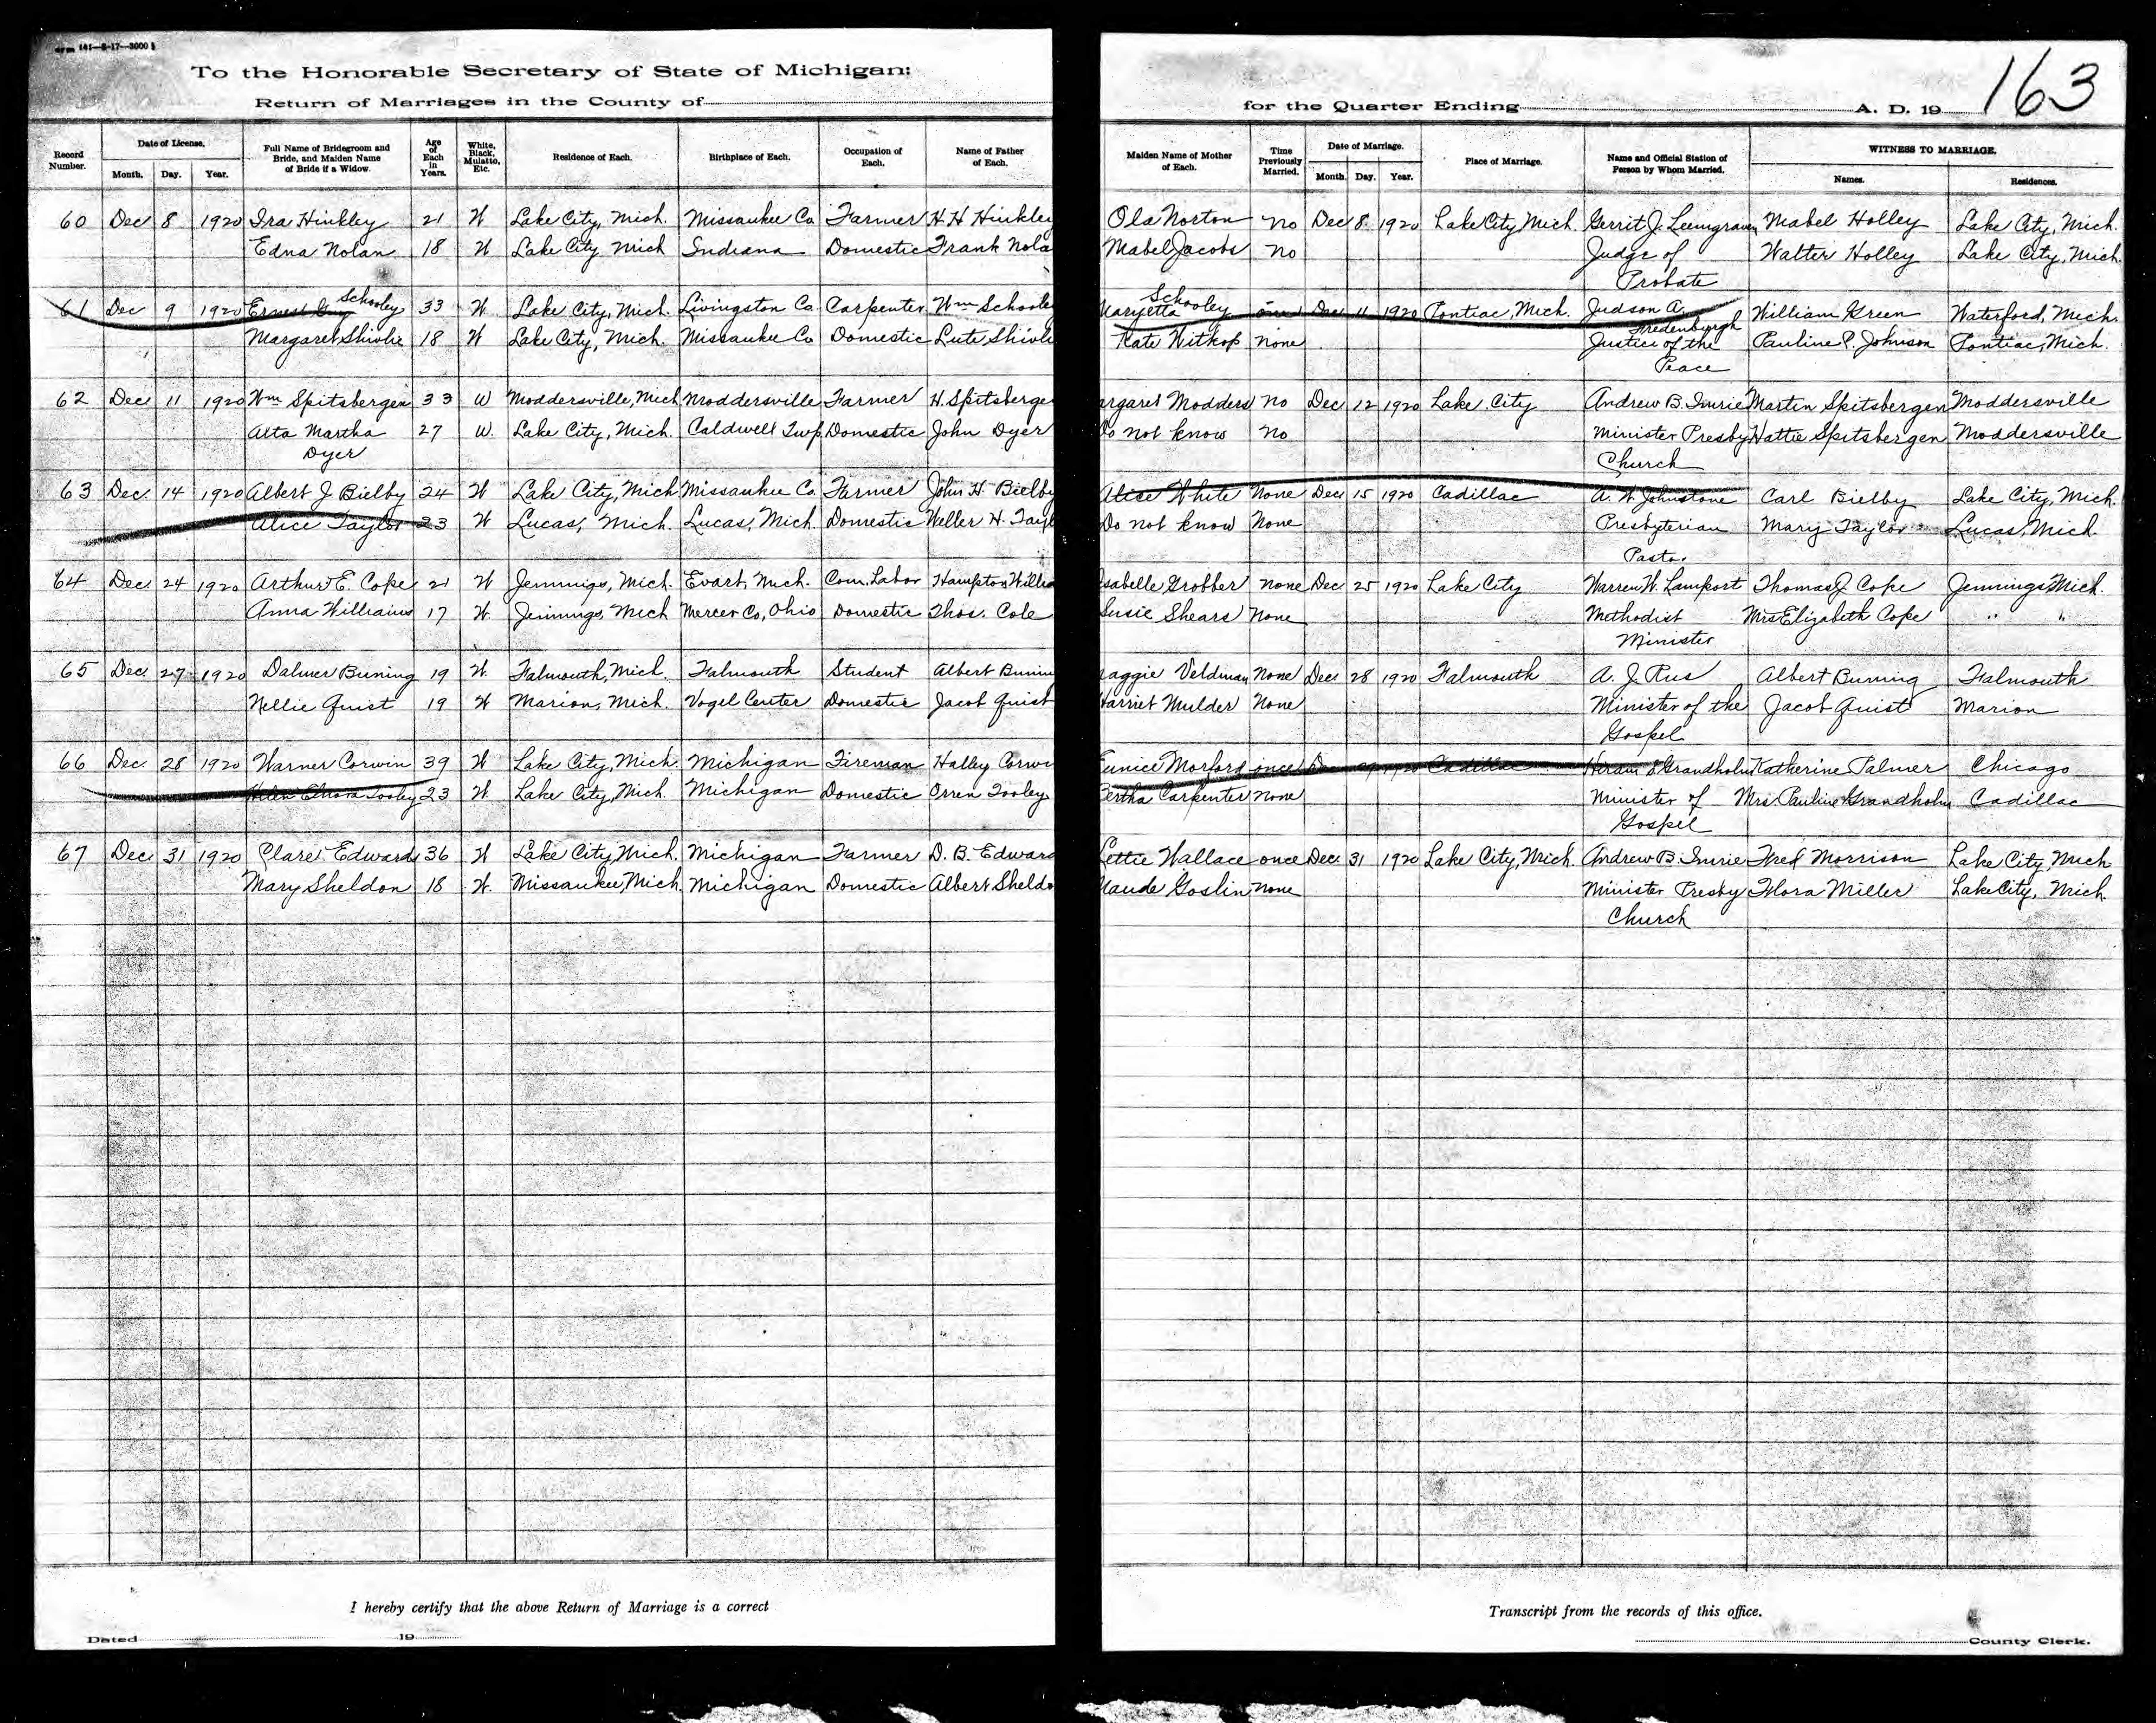 Form 141—8-17—3000
To the Honorable Secretary of State of Michigan:
Return of Marriages in the County of
for the Quarter Ending A. D. 19 163
Record Number. Date of License. Month. Day. Year. Full Name of Bridegroom and Bride, and Maiden Name of Bride if a Widow. Age of Each in Years. White, Black, Mulatto, Etc. Residence of Each. Birthplace of Each. Occupation of Each. Name of Father of Each. Maiden Name of Mother of Each. Time Previously Married. Date of Marriage. Month. Day. Year. Place of Marriage. Name and Official Station of Person by Whom Married. WITNESS TO MARRIAGE. Names. Residences.
60 Dec 8 1920 Ira Hinkley 21 W Lake City, Mich. Missaukee Co Farmer H H Hinkley Ola Norton no Dec 8. 1920 Lake City Mich. Gerrit J. Mabel Holley Lake City, Mich.
Edna Nolan 18 W Lake City Mich Indiana Domestic Frank Nola Mabel Jacobs no Judge of Walter Holley Lake City, Mich.
Probate
61 Dec 9 1920 Ernest G Schooley 33 W Lake City, Mich. Livingston Co Carpenter Wm Schoole Maryetta Schooley Dec 11 1920 Pontiac, Mich. Judson A. William Green Waterford, Mich.
Fredenburgh
Margaret 18 W Lake City, Mich. Missaukee Co Domestic Lute Kate Witkop none Justice of the Pauline P. Johnson Pontiac, Mich.
Peace
62 Dec 11 1920 Wm Spitsbergen 33 W Moddersville, Mich Moddersville Farmer H. Spitsberge argaret Modders no Dec 12 1920 Lake City Andrew B. Imrie Martin Spitsbergen Moddersville
Alta Martha 27 W. Lake City, Mich. Caldwell Twp. Domestic John Dyer Do not know no Minister Presby Hattie Spitsbergen Moddersville
Dyer Church
63 Dec. 14 1920 Albert J Bielby 24 W Lake City, Mich Missaukee Co. Farmer John H Bielby Alice White None Dec 15 1920 Cadillac A. W. Johnstone Carl Bielby Lake City, Mich.
Alice Taylor 23 W Lucas, Mich. Lucas, Mich. Domestic Weller H. Tayl Do not know None Presbyterian Mary Taylor Lucas, Mich.
Pastor
64 Dec. 24 1920 Arthur E. Cope 21 W Jennings, Mich. Evart, Mich. Com. Labor Hampton Willia Isabelle Grobber none Dec 25 1920 Lake City Warren W. Lamport Thomas J Cope Jennings Mich.
Anna Williams 17 W. Jennings, Mich Mercer Co, Ohio Domestic Thos. Cole Susie Shears None Methodist Mrs Elizabeth Cope " "
Minister
65 Dec. 27 1920 Dalmer Buning 19 W. Falmouth, Mich. Falmouth Student Albert Bunin aggie Veldman None Dec 28 1920 Falmouth A. J. Rus Albert Buning Falmouth
Nellie Quist 19 W Marion, Mich. Vogel Center Domestic Jacob Quist Harriet Mulder None Minister of the Jacob Quist Marion
Gospel
66 Dec. 28 1920 Warner Corwin 39 W Lake City, Mich. Michigan Fireman Halley Corwi Eunice Morford once 1920 Cadillac Hiram Grandholm Katherine Palmer Chicago
Helen Elnora Tooley 23 W. Lake City, Mich. Michigan Domestic Orren Tooley Bertha Carpenter none Minister of Mrs Pauline Grandholm Cadillac
Gospel
67 Dec 31 1920 Clare Edwards 36 W Lake City, Mich. Michigan Farmer D. B. Edward Lettie Wallace once Dec. 31 1920 Lake City, Mich. Andrew B. Imrie Fred Morrison Lake City, Mich
Mary Sheldon 18 W. Missaukee, Mich. Michigan Domestic Albert Sheldo Maude Goslin none Minister Presby Flora Miller Lake City, Mich.
Church
I hereby certify that the above Return of Marriage is a correct Transcript from the records of this office.
Dated 19 County Clerk.